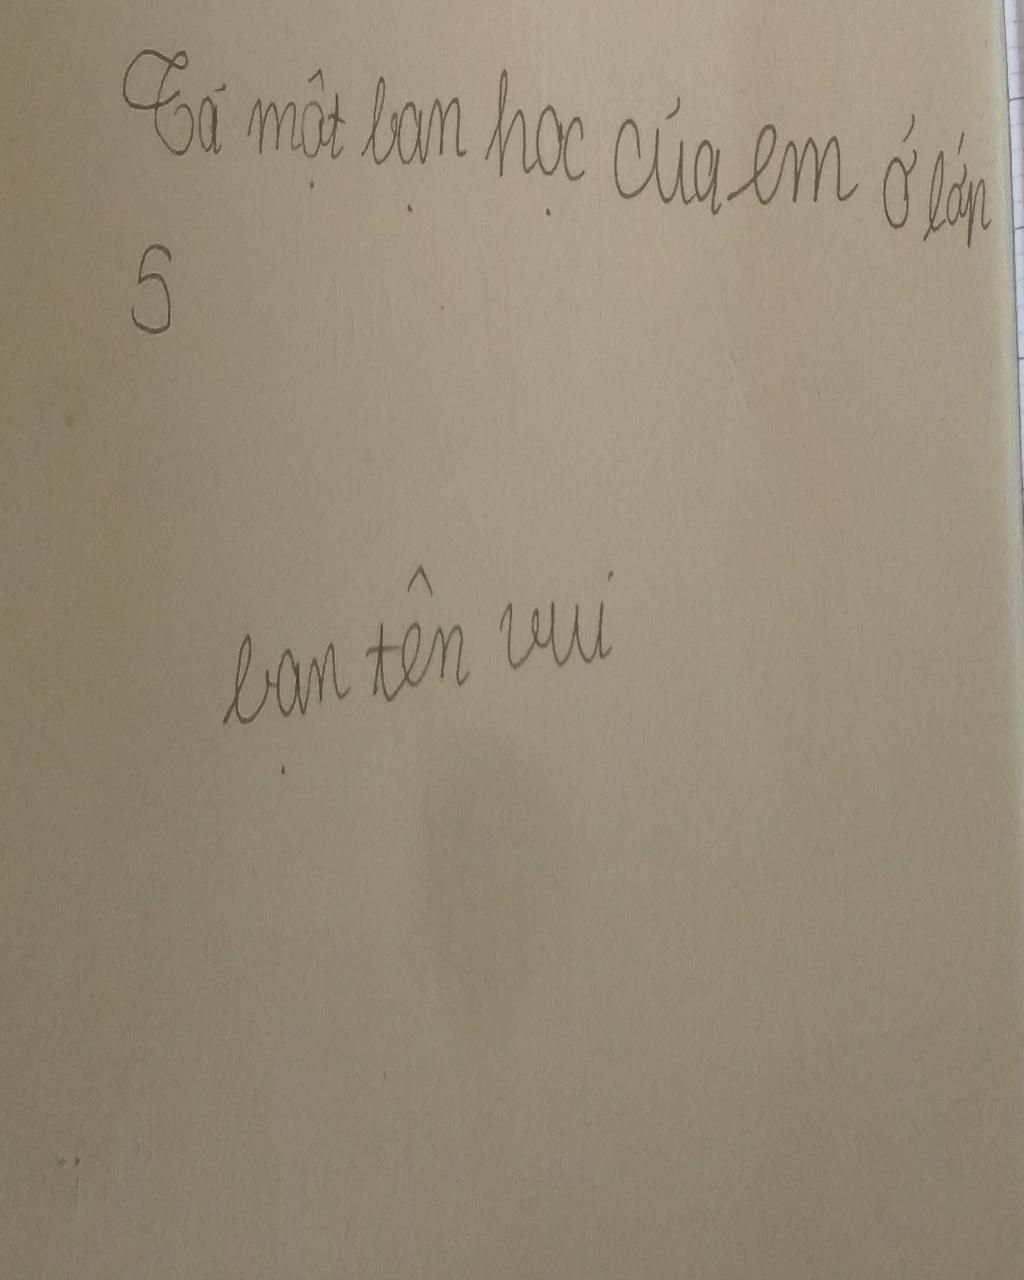 Tả một bạn học của em ở lớp
5
bạn tên vui